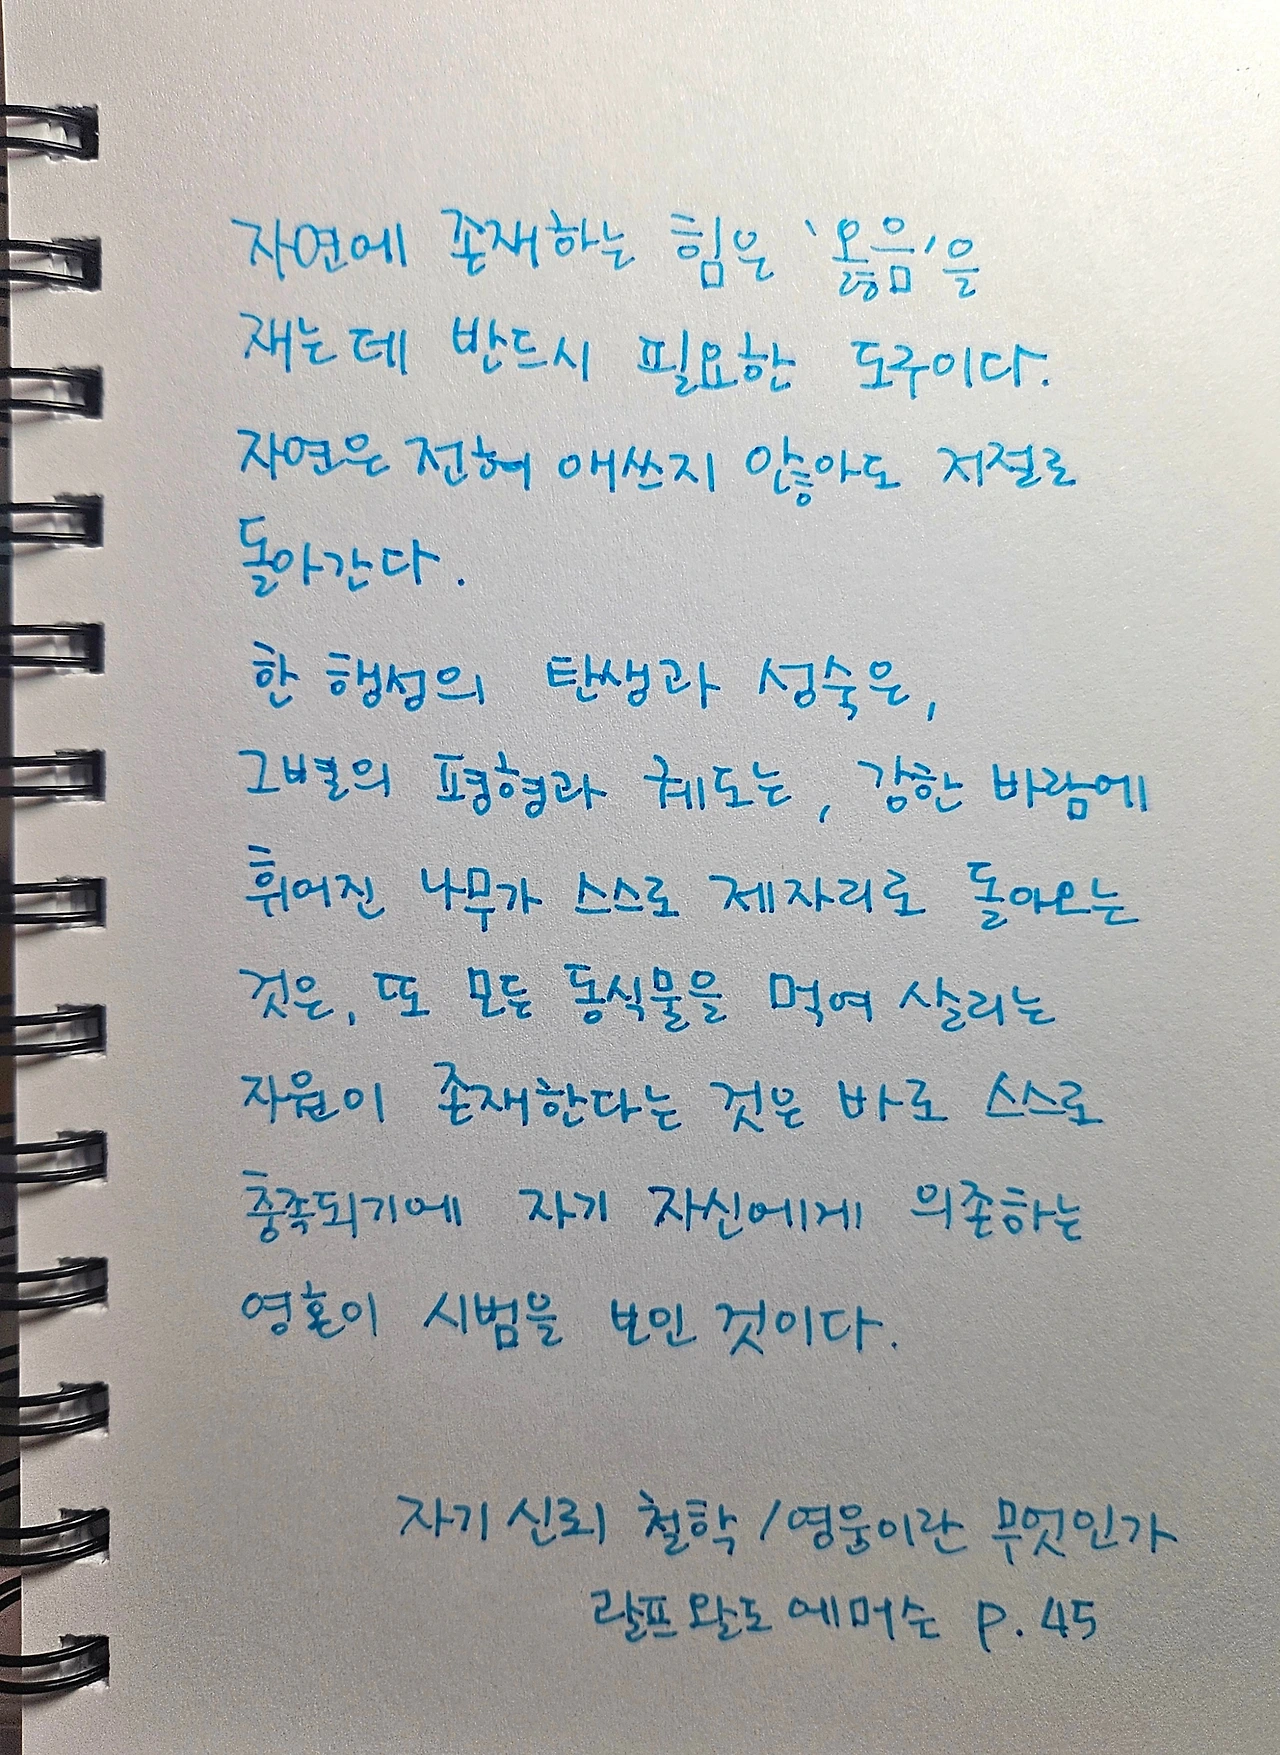 자연에 존재하는 힘은 '옳음'을
재는데 반드시 필요한 도구이다.
자연은 전혀 애쓰지 않아도 저절로
돌아간다.
한 행성의 탄생과 성숙은,
그 별의 평형과 궤도는, 강한 바람에
휘어진 나무가 스스로 제자리로 돌아오는
것은, 또 모든 동식물을 먹여 살리는
자원이 존재한다는 것은 바로 스스로
충족되기에 자기 자신에게 의존하는
영혼이 시범을 보인 것이다.
자기 신뢰 철학 / 영웅이란 무엇인가
랄프 왈도 에머슨 p. 45